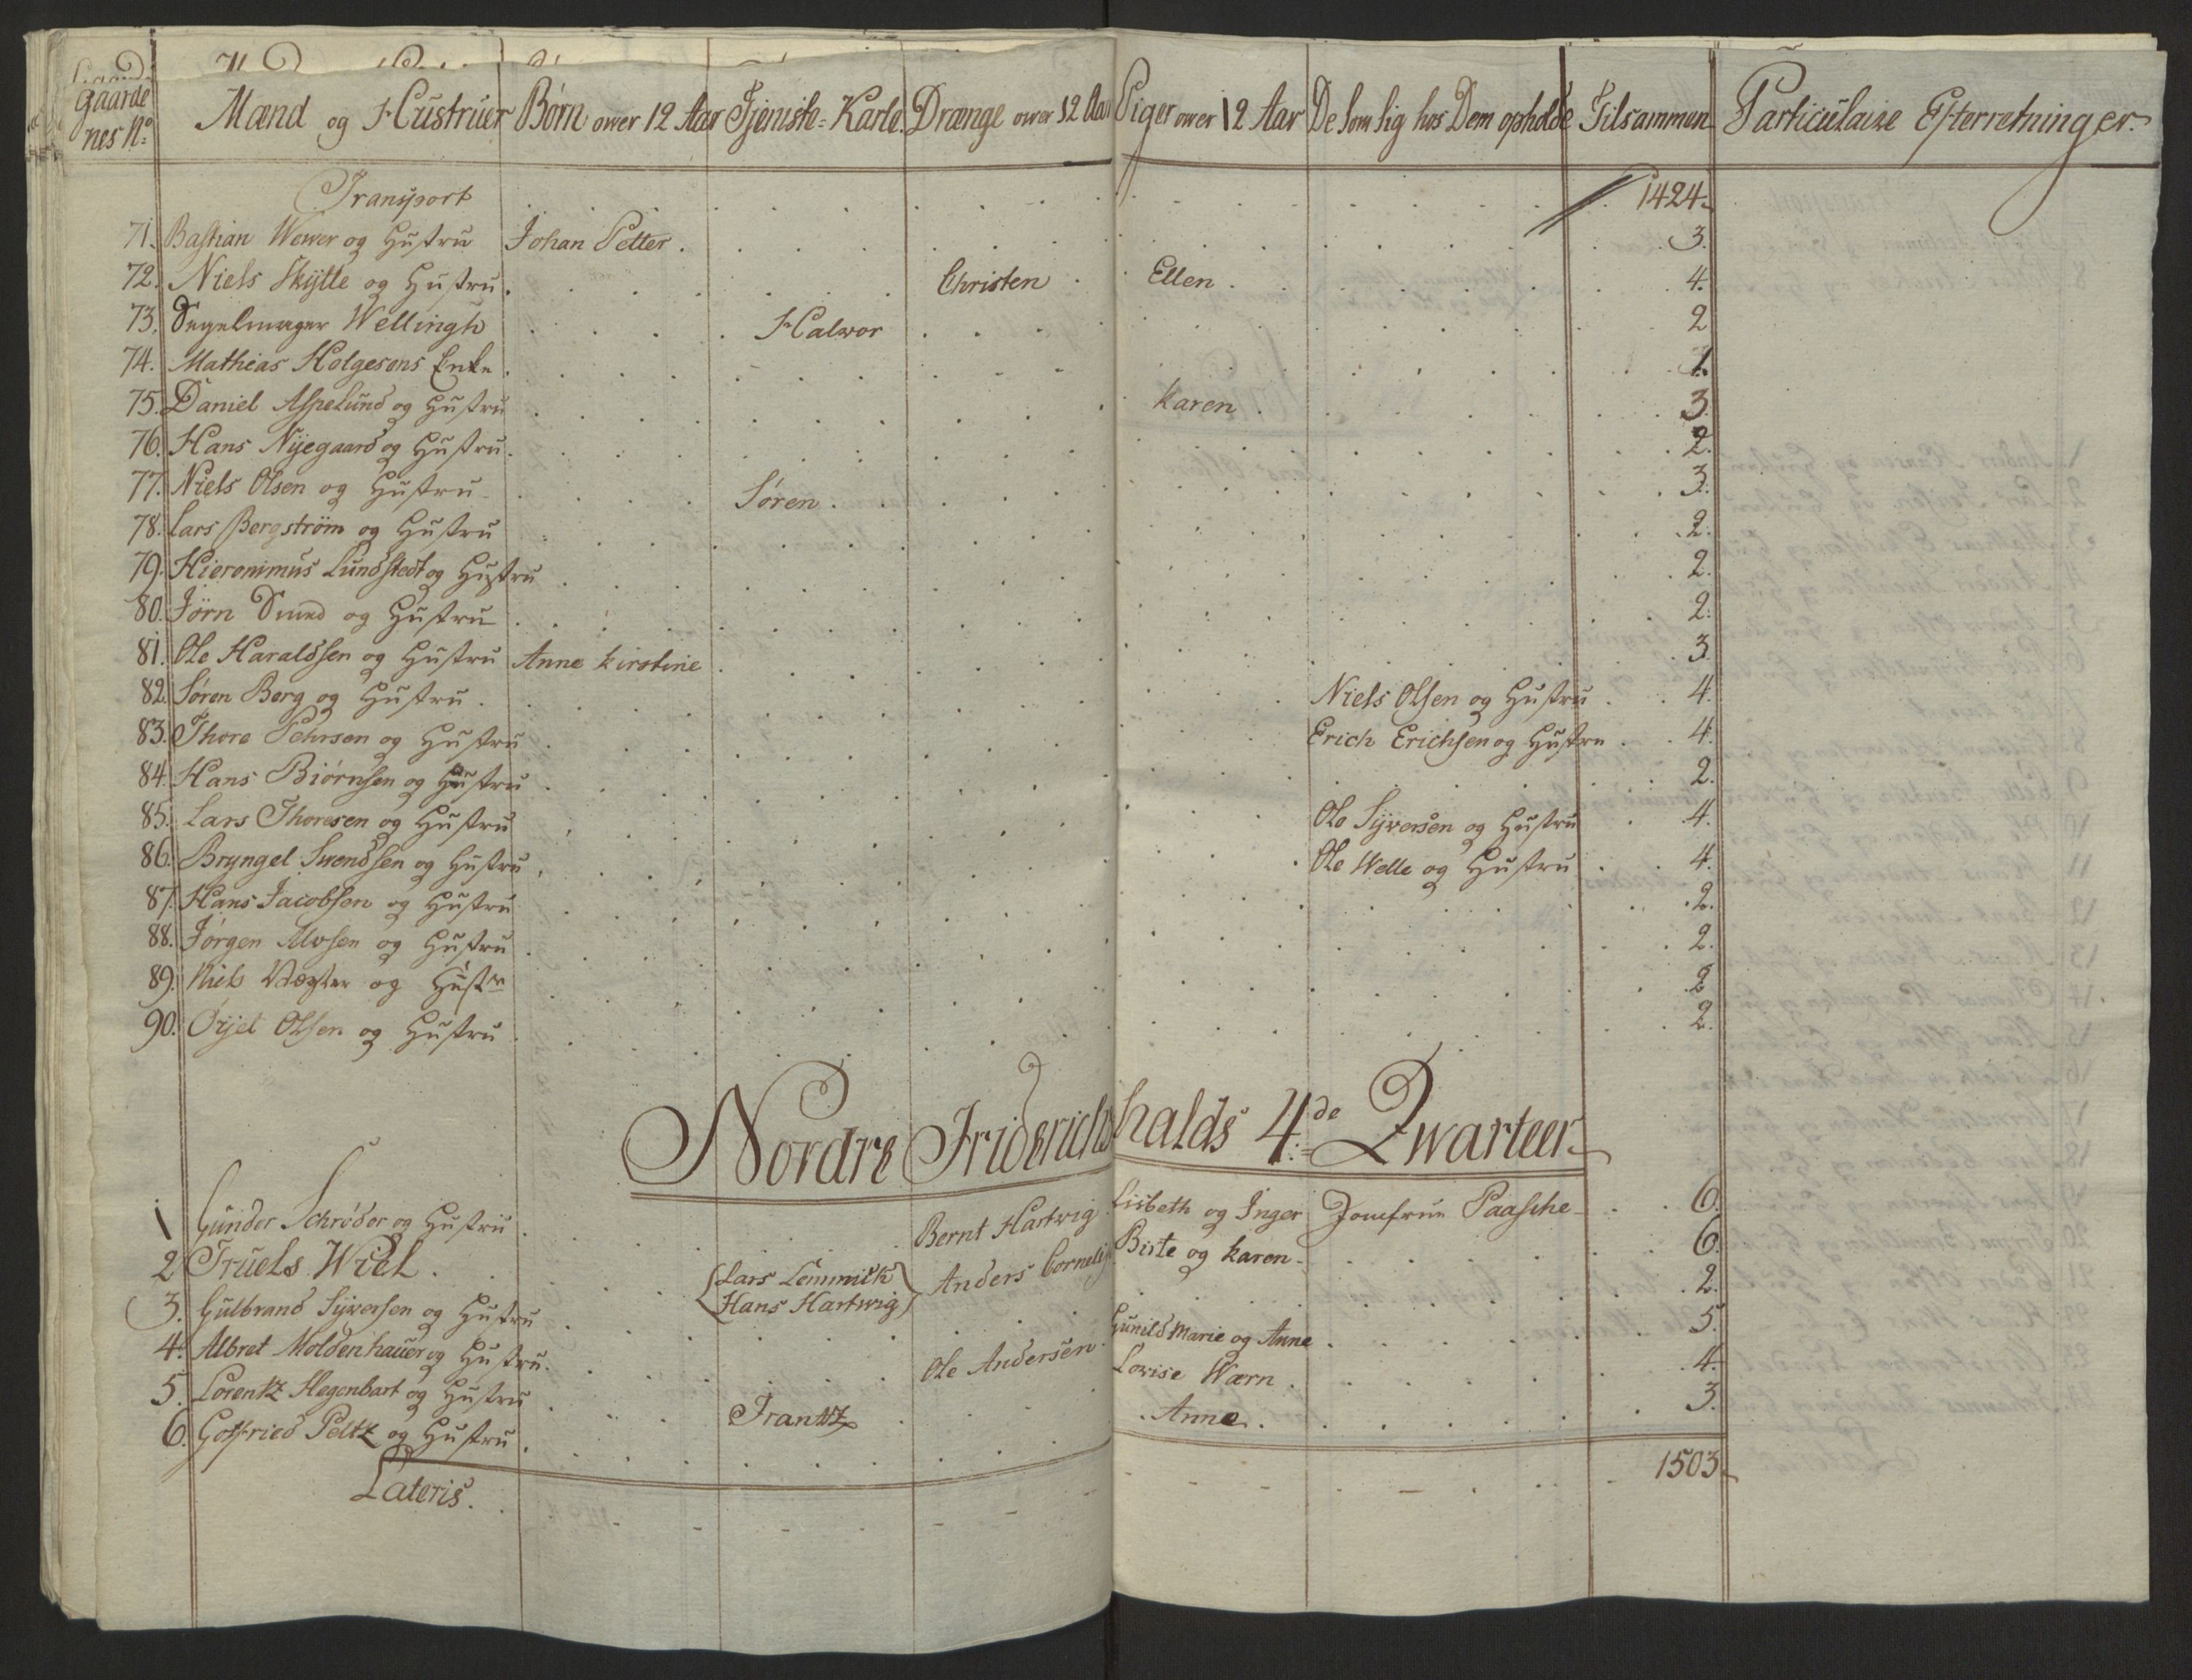 Gaarde nes No Mænd og Hustruer Børn ower 12 Aar Tjeniste=Karle Drænge ower 12 Aar Piger ower 12 Aar De som sig hos Dem opholde Tilsammen Particulaire Efterretninger.
Transport 1424
71. Bastian Wewer og Hustru Johan Petter 3.
72. Niels Skytte og Hustru Christen Ellen 4.
73. Segelmager Wellingh Halwor 2
74. Mathias Holgesons Enke 1.
75. Daniel Aspelund og Hustru Karen 3.
76. Hans Nyegaard og Hustru 2.
77. Niels Olsen og Hustru Søren 3.
78. Lars Bergström og Hustru 2.
79. Hieronimus Lundstedt og Hustru 2.
80. Jörn Smed og Hustru 2.
81. Ole Haraldsen og Hustru Anne Kirstine 3.
82. Søren Berg og Hustru Niels Olsen og Hustru 4.
83. Thore Pehrsen og Hustru Erich Erichsen og Hustru 4.
84. Hans Biørnsen og Hustru 2.
85. Lars Thoresen og Hustru Ole Syversen og Hustru 4.
86. Bryngel Swendsen og Hustru Ole Welle og Hustru 4.
87. Hans Jacobsen og Hustru 2.
88. Jørgen Alvsen og Hustru 2.
89. Niels Vægter og Hustr 2
90. Örjel Olsen og Hustru 2.
Nordre Friderichshalds 4de Qwarteer
1 Gunder Schrøder og Hustru Bernt Hartwig Lisbeth og Inger Jomfrue Paasche 6.
2 Truels Wiel Lars Lemmick Hans Hartwig Anders Cornelij Birte og Karen 6.
3. Gulbrand Syversen og Hustru 2.
4. Albret Moldenhauer og Hustru Ole Andersen Gunild Marie og Anne 5.
5. Lorentz Hegenbart og Hustru Lovise Wærn 4.
6. Gotfried Peltz og Hustru Frantz Anne 3.
Lateris 1503